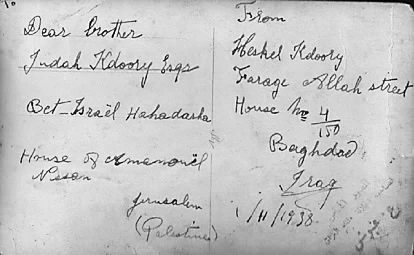 Dear brother
Judah Kdoory Esqr
Bet-Israël Hahadasha
House of Amanouël
Nissan
Jerusalem
(Palestine)
From
Heskel Kdoory
Farage Allah street
House No 4/150
Baghdad
Iraq
1/11/1938